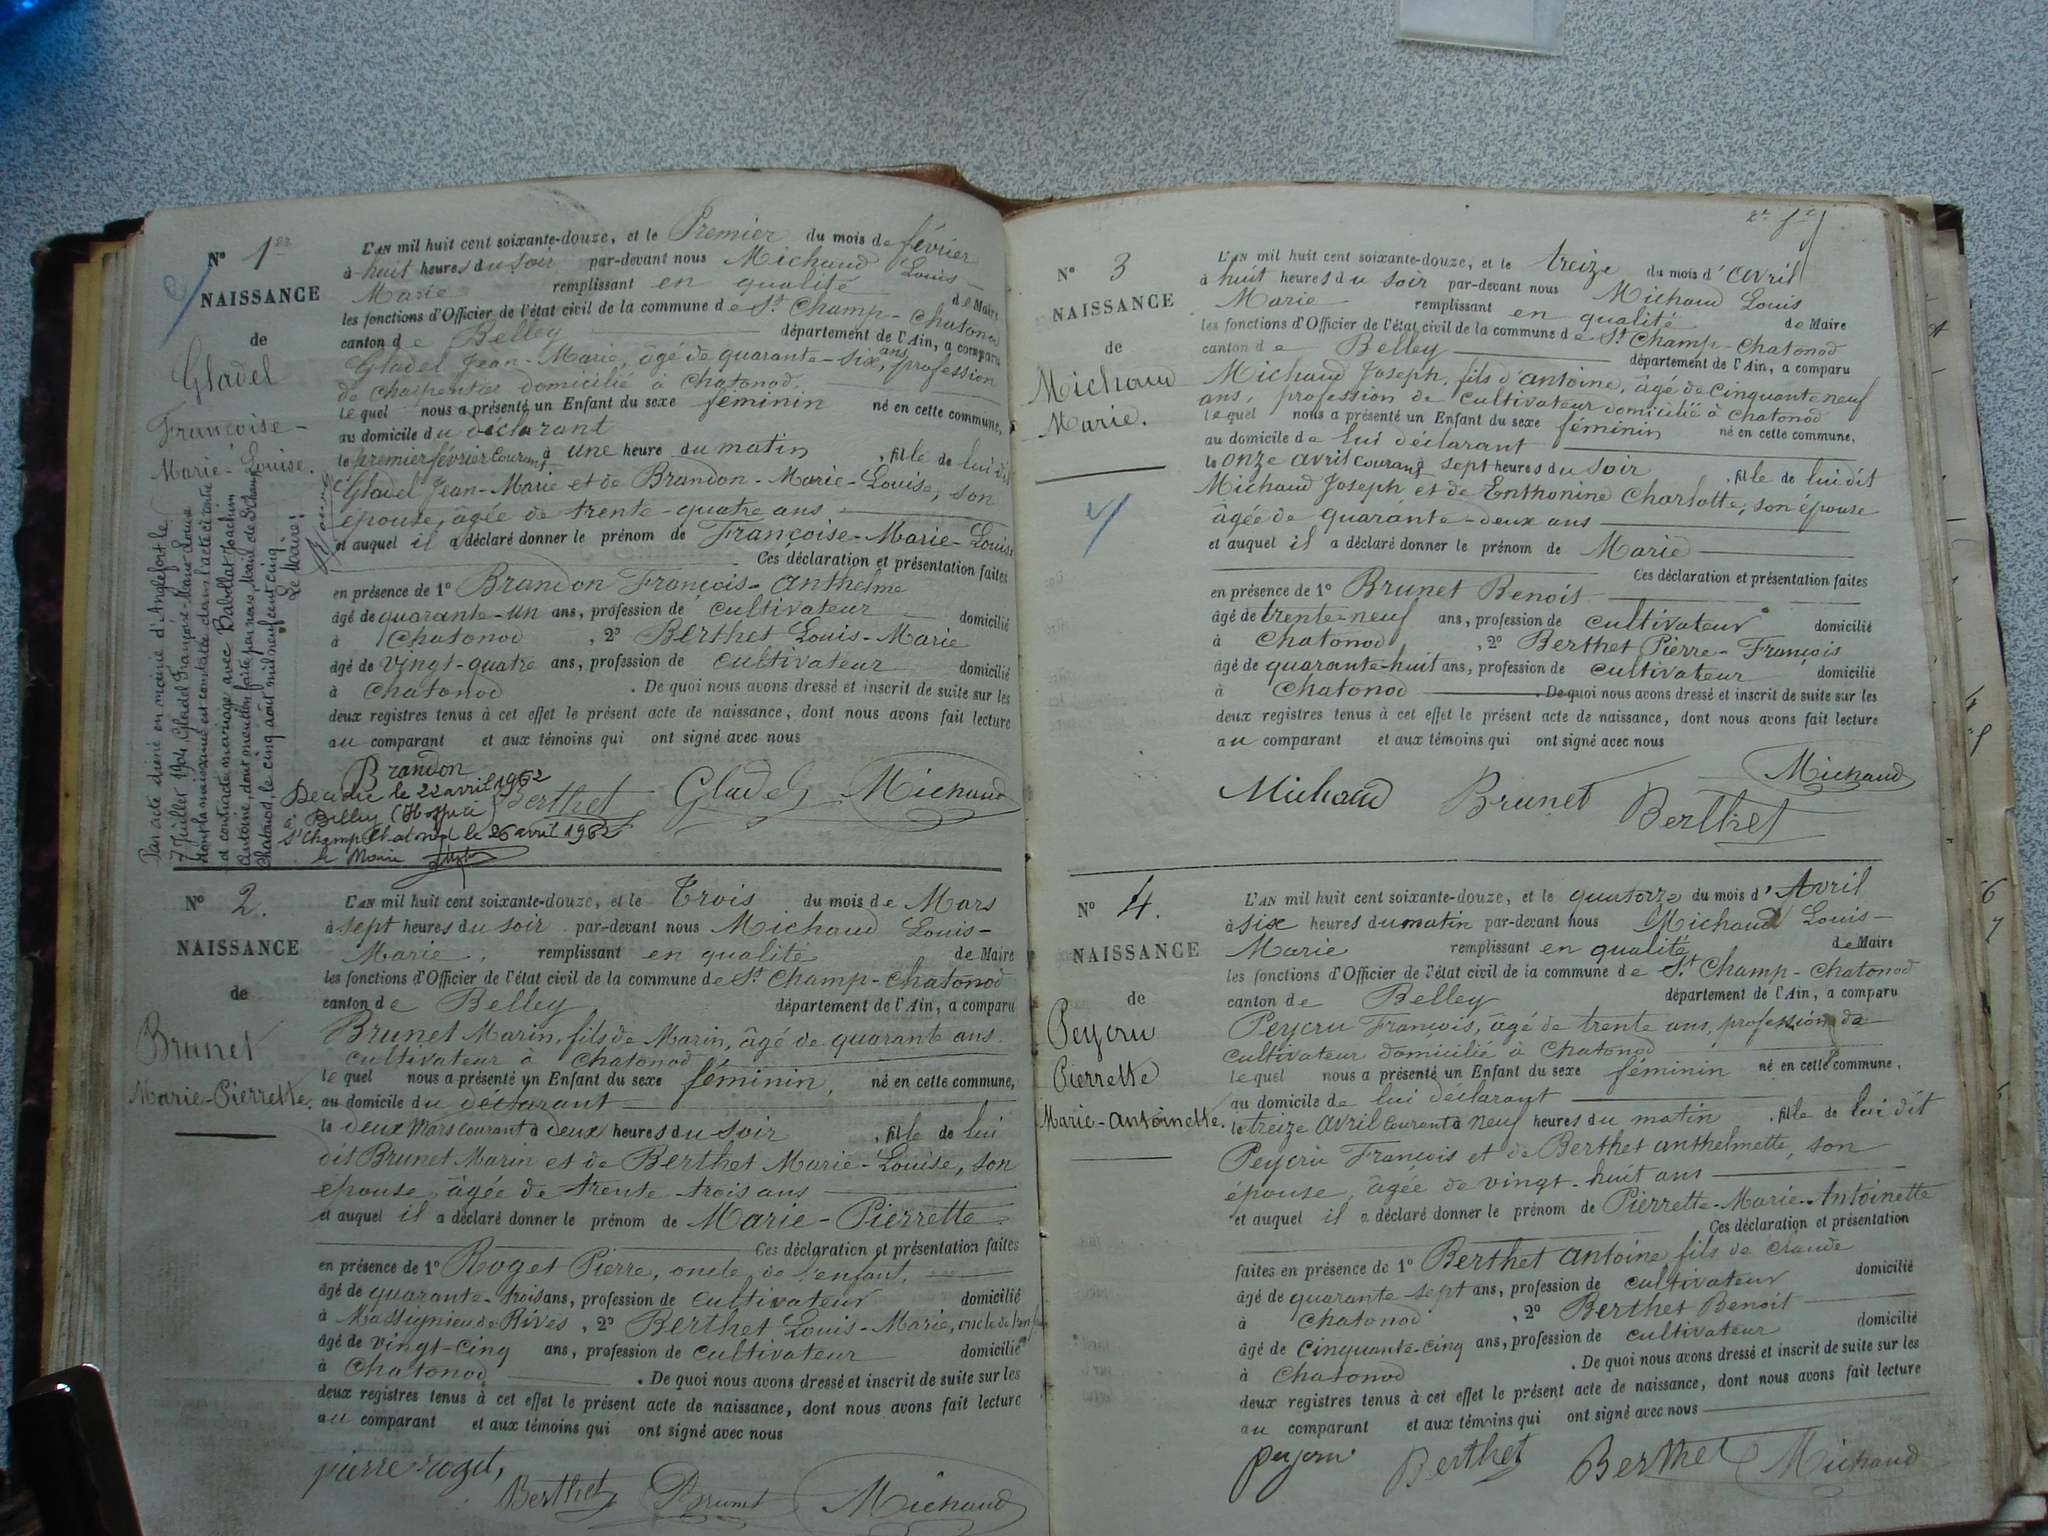 N° 1er
NAISSANCE
de
Gladel
Françoise-
Marie-Louise.
L'AN mil huit cent soixante-douze, et le Premier du mois de février
à huit heures du soir par-devant nous Michaud Louis-
Marie remplissant en qualité de Maire
les fonctions d'Officier de l'état civil de la commune de St Champ-Chatonod
canton de Belley département de l'Ain, a comparu
Gladel Jean-Marie, âgé de quarante-six ans, profession
de charpentier domicilié à Chatonod.
le quel nous a présenté un Enfant du sexe féminin né en cette commune,
au domicile du déclarant
le premier février courant à une heure du matin, fille de lui dit
Gladel Jean-Marie et de Brandon-Marie-Louise, son
épouse, âgée de trente-quatre ans
et auquel il a déclaré donner le prénom de Françoise-Marie-Louise
Ces déclaration et présentation faites
en présence de 1° Brandon François-Anthelme
âgé de quarante-un ans, profession de cultivateur domicilié
à Chatonod, 2° Berthet Louis-Marie
âgé de vingt-quatre ans, profession de cultivateur domicilié
à Chatonod. De quoi nous avons dressé et inscrit de suite sur les
deux registres tenus à cet effet le présent acte de naissance, dont nous avons fait lecture
au comparant et aux témoins qui ont signé avec nous
Brandon
Berthet Gladel Michaud
Par acte dressé en mairie d'Anglefort le
7 Juillet 1904, Gladel Françoise-Marie-Louise
dont la naissance est constatée dans l'acte ci-contre
a contracté mariage avec Babollat Joachim
Antoine, dont mention faite par nous, Maire de St Champ
Chatonod, le cinq août mil neuf cent cinq
Le Maire:
Décédée le 22 avril 1962
à Belley (Hospice)
St Champ Chatonod le 26 avril 1962
le Maire
N° 2.
NAISSANCE
de
Brunet
Marie-Pierrette.
L'AN mil huit cent soixante-douze, et le Trois du mois de Mars
à sept heures du soir par-devant nous Michaud Louis-
Marie, remplissant en qualité de Maire
les fonctions d'Officier de l'état civil de la commune de St Champ-Chatonod
canton de Belley département de l'Ain, a comparu
Brunet Marin, fils de Marin, âgé de quarante ans
cultivateur à Chatonod
le quel nous a présenté un Enfant du sexe féminin, né en cette commune,
au domicile du déclarant
le deux Mars courant à deux heures du soir, fille de lui
dit Brunet Marin et de Berthet Marie-Louise, son
épouse, âgée de trente-trois ans
et auquel il a déclaré donner le prénom de Marie-Pierrette
Ces déclaration et présentation faites
en présence de 1° Roget Pierre, oncle de l'enfant,
âgé de quarante-trois ans, profession de cultivateur domicilié
à Massignieu de Rives, 2° Berthet Louis-Marie, oncle de l'enfant
âgé de vingt-cinq ans, profession de cultivateur domicilié
à Chatonod. De quoi nous avons dressé et inscrit de suite sur les
deux registres tenus à cet effet le présent acte de naissance, dont nous avons fait lecture
au comparant et aux témoins qui ont signé avec nous
pierre roget,
Berthet Brunet Michaud
N° 3
NAISSANCE
de
Michaud
Marie.
L'AN mil huit cent soixante-douze, et le treize du mois d'Avril
à huit heures du soir par-devant nous Michaud Louis
Marie remplissant en qualité de Maire
les fonctions d'Officier de l'état civil de la commune de St Champ-Chatonod
canton de Belley département de l'Ain, a comparu
Michaud Joseph, fils d'antoine, âgé de cinquante neuf
ans, profession de cultivateur domicilié à Chatonod
le quel nous a présenté un Enfant du sexe féminin né en cette commune,
au domicile de lui déclarant
le onze avril courant à sept heures du soir, fille de lui dit
Michaud Joseph et de Enthonine Charlotte, son épouse
âgée de quarante-deux ans
et auquel il a déclaré donner le prénom de Marie
Ces déclaration et présentation faites
en présence de 1° Brunet Benoit
âgé de trente-neuf ans, profession de cultivateur domicilié
à Chatonod, 2° Berthet Pierre-François
âgé de quarante-huit ans, profession de cultivateur domicilié
à Chatonod. De quoi nous avons dressé et inscrit de suite sur les
deux registres tenus à cet effet le présent acte de naissance, dont nous avons fait lecture
au comparant et aux témoins qui ont signé avec nous
Michaud
Michaud Brunet Berthet
N° 4.
NAISSANCE
de
Peycru
Pierrette
Marie-Antoinette.
L'AN mil huit cent soixante-douze, et le quatorze du mois d'Avril
à six heures du matin par-devant nous Michaud Louis-
Marie remplissant en qualité de Maire
les fonctions d'Officier de l'état civil de la commune de St Champ-Chatonod
canton de Belley département de l'Ain, a comparu
Peycru François, âgé de trente ans, profession de
cultivateur domicilié à Chatonod
le quel nous a présenté un Enfant du sexe féminin né en cette commune,
au domicile de lui déclarant
le treize avril courant à neuf heures du matin, fille de lui dit
Peycru François et de Berthet anthelmette, son
épouse, âgée de vingt-huit ans
et auquel il a déclaré donner le prénom de Pierrette-Marie-Antoinette
Ces déclaration et présentation
faites en présence de 1° Berthet Antoine fils de Claude
âgé de quarante sept ans, profession de cultivateur domicilié
à Chatonod, 2° Berthet Benoit
âgé de cinquante-cinq ans, profession de cultivateur domicilié
à Chatonod. De quoi nous avons dressé et inscrit de suite sur les
deux registres tenus à cet effet le présent acte de naissance, dont nous avons fait lecture
au comparant et aux témoins qui ont signé avec nous
peycru Berthet Berthet Michaud